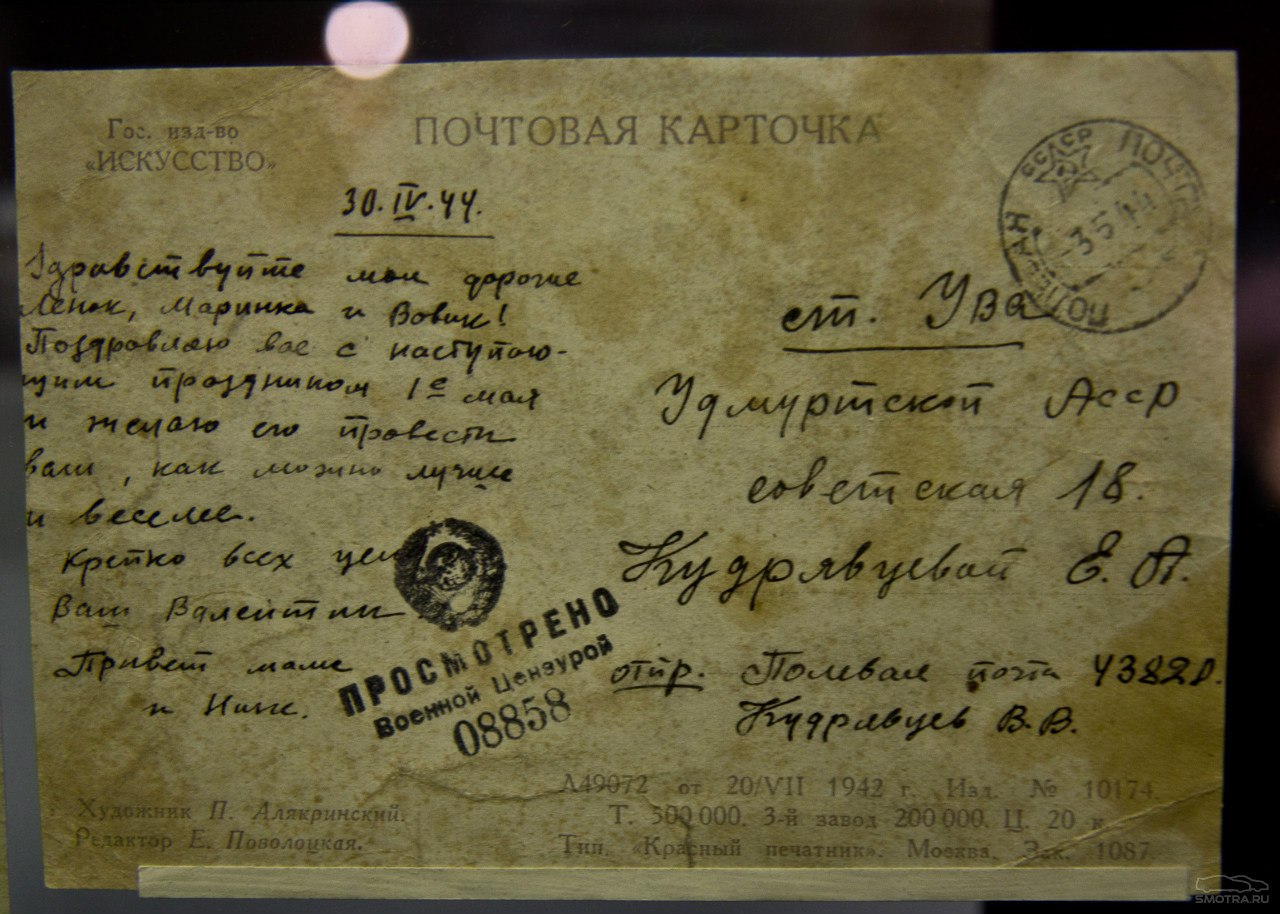 Гос. изд-во
«ИСКУССТВО»
ПОЧТОВАЯ КАРТОЧКА
30.IV.44.
Здравствуйте мои дорогие
Ленок, Маринка и Вовик!
Поздравляю вас с наступаю-
щим праздником 1е мая
и желаю его провести
вам, как можно лучше
и веселее.
Крепко всех
Ваш Валентин
Привет маме
и Нине.
СССР ПОЧТА
3 5 44
ст. Ува
Удмуртской Асср
советская 18.
Кудрявцевой Е. А.
отпр. Полевая почта 43820.
Кудрявцев В. В.
ПРОСМОТРЕНО
Военной Цензурой
08858
Художник П. Алякринский.
Редактор Е. Поволоцкая.
А49072 от 20/VII 1942 г. Изд. № 10174.
Т. 500 000. 3-й завод 200 000. Ц. 20 к.
Тип. «Красный печатник». Москва. Зак. 1087.
SMOTRA.RU